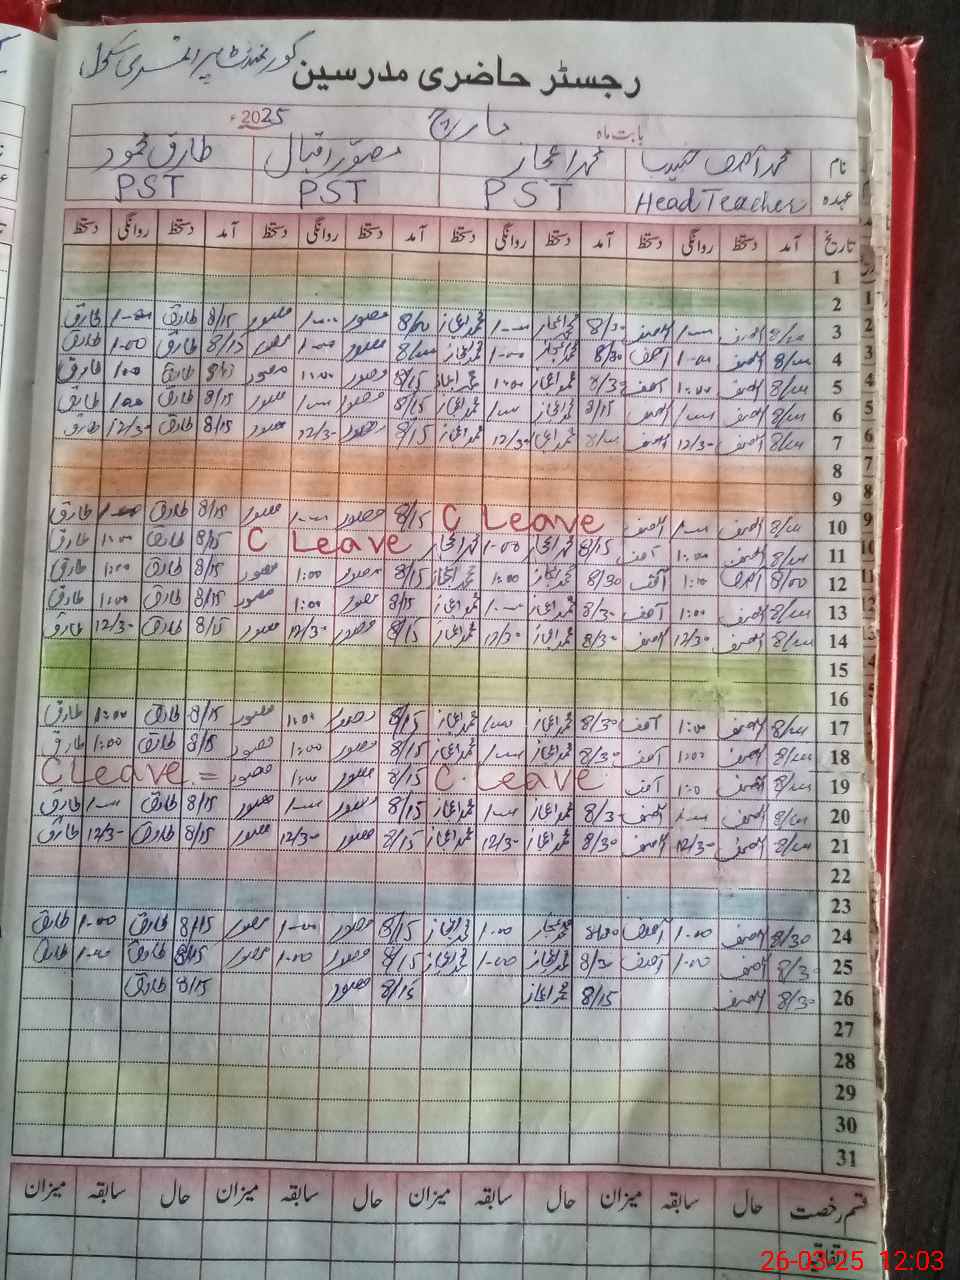 گورنمنٹ پرائمری سکول
رجسٹر حاضری مدرسین
بابت ماہ مارچ 2025ء
نام محمد آصف محمد اعجاز مصور اقبال طارق محمود
عہدہ Head Teacher PST PST PST
تاریخ آمد دستخط روانگی دستخط آمد دستخط روانگی دستخط آمد دستخط روانگی دستخط آمد دستخط روانگی دستخط
1
2
3 8/00 آصف 1-00 آصف 8/30 محمد اعجاز 1-00 محمد اعجاز 8/00 مصور 1-00 مصور 8/15 طارق 1-00 طارق
4 8/00 آصف 1-00 آصف 8/30 محمد اعجاز 1-00 محمد اعجاز 8/00 مصور 1-00 مصور 8/15 طارق 1-00 طارق
5 8/00 آصف 1:00 آصف 8/30 محمد اعجاز 1:00 محمد اعجاز 8/15 مصور 1:00 مصور 8/15 طارق 1:00 طارق
6 8/00 آصف 1-00 آصف 8/15 محمد اعجاز 1-00 محمد اعجاز 8/15 مصور 1-00 مصور 8/15 طارق 1:00 طارق
7 8/00 آصف 12/30 آصف 8/00 محمد اعجاز 12/30 محمد اعجاز 8/15 مصور 12/30 مصور 8/15 طارق 12/30 طارق
8
9
10 8/00 آصف 1-00 آصف C Leave 8/15 مصور 1-00 مصور 8/15 طارق 1-00 طارق
11 8/00 آصف 1:00 آصف 8/15 محمد اعجاز 1-00 محمد اعجاز C Leave 8/15 طارق 1:00 طارق
12 8/00 آصف 1:00 آصف 8/30 محمد اعجاز 1:00 محمد اعجاز 8/15 مصور 1:00 مصور 8/15 طارق 1:00 طارق
13 8/00 آصف 1:00 آصف 8/30 محمد اعجاز 1-00 محمد اعجاز 8/15 مصور 1:00 مصور 8/15 طارق 1:00 طارق
14 8/00 آصف 12/30 آصف 8/30 محمد اعجاز 12/30 محمد اعجاز 8/15 مصور 12/30 مصور 8/15 طارق 12/30 طارق
15
16
17 8/00 آصف 1:00 آصف 8/30 محمد اعجاز 1-00 محمد اعجاز 8/15 مصور 1:00 مصور 8/15 طارق 1:00 طارق
18 8/00 آصف 1:00 آصف 8/30 محمد اعجاز 1-00 محمد اعجاز 8/15 مصور 1:00 مصور 8/15 طارق 1:00 طارق
19 8/00 آصف 1:0 آصف C Leave 8/15 مصور 1:00 مصور C Leave =
20 8/00 آصف 1-00 آصف 8/30 محمد اعجاز 1-00 محمد اعجاز 8/15 مصور 1-00 مصور 8/15 طارق 1-00 طارق
21 8/00 آصف 12/30 آصف 8/30 محمد اعجاز 12/30 محمد اعجاز 8/15 مصور 12/30 مصور 8/15 طارق 12/30 طارق
22
23
24 8/30 آصف 1-00 آصف محمد اعجاز 1-00 محمد اعجاز 8/15 مصور 1-00 مصور 8/15 طارق 1-00 طارق
25 8/30 آصف 1-00 آصف 8/30 محمد اعجاز 1-00 محمد اعجاز 8/15 مصور 1-00 مصور 8/15 طارق 1-00 طارق
26 8/30 آصف 8/15 محمد اعجاز 8/15 مصور 8/15 طارق
27
28
29
30
31
قسم رخصت حال سابقہ میزان حال سابقہ میزان حال سابقہ میزان حال سابقہ میزان
26-03-25 12:03